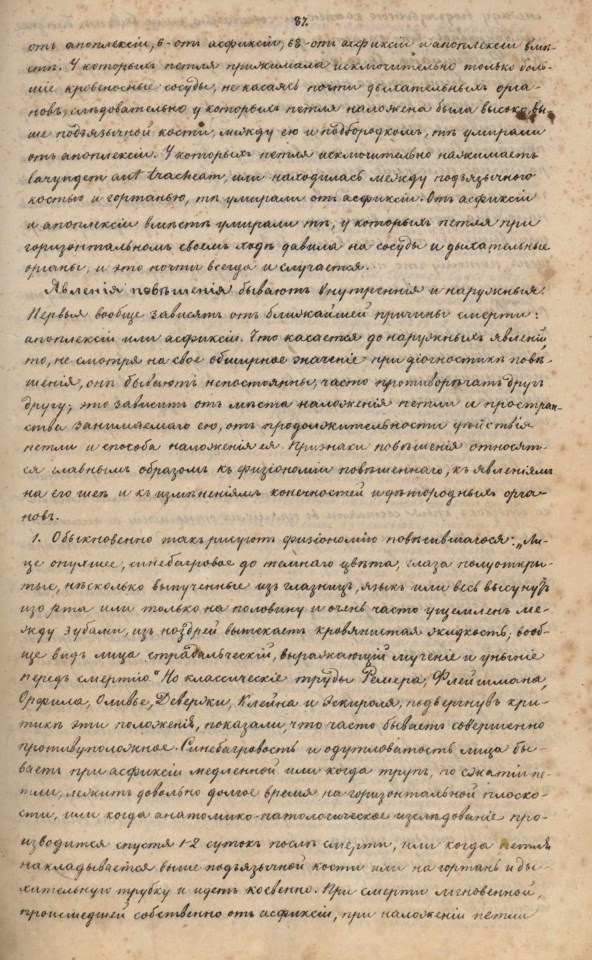 87.
отъ апоплексіи, 6-отъ асфиксіи, 68-отъ асфиксіи и апоплексіи вмѣ-
стѣ. У которыхъ петля прижимала исключительно только боль-
шіе кровеносные сосуды, не касаясь почти дыхательныхъ орга-
новъ, слѣдовательно у которыхъ петля наложена была высоко, вы-
ше подъязычной кости, между ею и подбородкомъ, тѣ умирали
отъ апоплексіи. У которыхъ петля исключительно нажимаетъ
laryngem aut tracheam, или находилась между подъязычного
костью и гортанью, тѣ умирали отъ асфиксіи. Отъ асфиксіи
и апоплексіи вмѣстѣ умирали тѣ, у которыхъ петля при
горизонтальномъ своемъ ходѣ давила на сосуды и дыхательные
органы, и это почти всегда и случается.
Явленія повѣшенія бываютъ внутреннія и наружныя.
Первыя вообще зависятъ отъ ближайшей причины смерти:
апоплексіи или асфиксіи. Что касается до наружныхъ явленій
то, не смотря на свое обширное значеніе при діогностикѣ повѣ-
шенія, онѣ бываютъ непостоянны, часто противорѣчатъ другъ
другу; это зависитъ отъ мѣста наложенія петли и простран-
ства занимаемаго ею, отъ продолжительности дѣйствія
петли и способа наложенія ея. Признаки повѣшенія относят-
ся главнымъ образомъ къ физіономіи повѣшеннаго, къ явленіямъ
на его шеѣ и къ измѣненіямъ конечностей и дѣтородныхъ орга-
новъ.
1. Обыкновенно такъ рисуютъ физіономію повѣсившагося: „Ли-
це опухшее, синебагровое до темнаго цвѣта, глаза полуоткры-
тые, нѣсколько выпученные изъ глазницъ, языкъ или весь высунутъ
изо рта или только на половину и очень часто ущемленъ ме-
жду зубами, изъ ноздрей вытекаетъ кровянистая жидкость; вооб-
ще видъ лица страдальческій, выражающій мученіе и уныніе
передъ смертію." Но классическіе труды Ремера, Флейшмана,
Орфила, Оливье, Девержи, Клейна и Эскироля, подвергнувъ кри-
тикѣ эти положенія, показали, что часто бываетъ совершенно
противуположное. Синебагровость и одутловатость лица бы-
ваетъ при асфиксіи медленной или когда трупъ, по сжатіи пе-
тли, лежитъ довольно долгое время на горизонтальной плоско-
сти, или когда анатомико-патологическое изслѣдованіе про-
изводится спустя 1-2 сутокъ послѣ смерти, или когда петля
накладывается выше подъязычной кости или на гортань и ды-
хательную трубку и идетъ косвенно. При смерти мгновенной,
происшедшей собственно отъ асфиксіи, при наложеніи петли